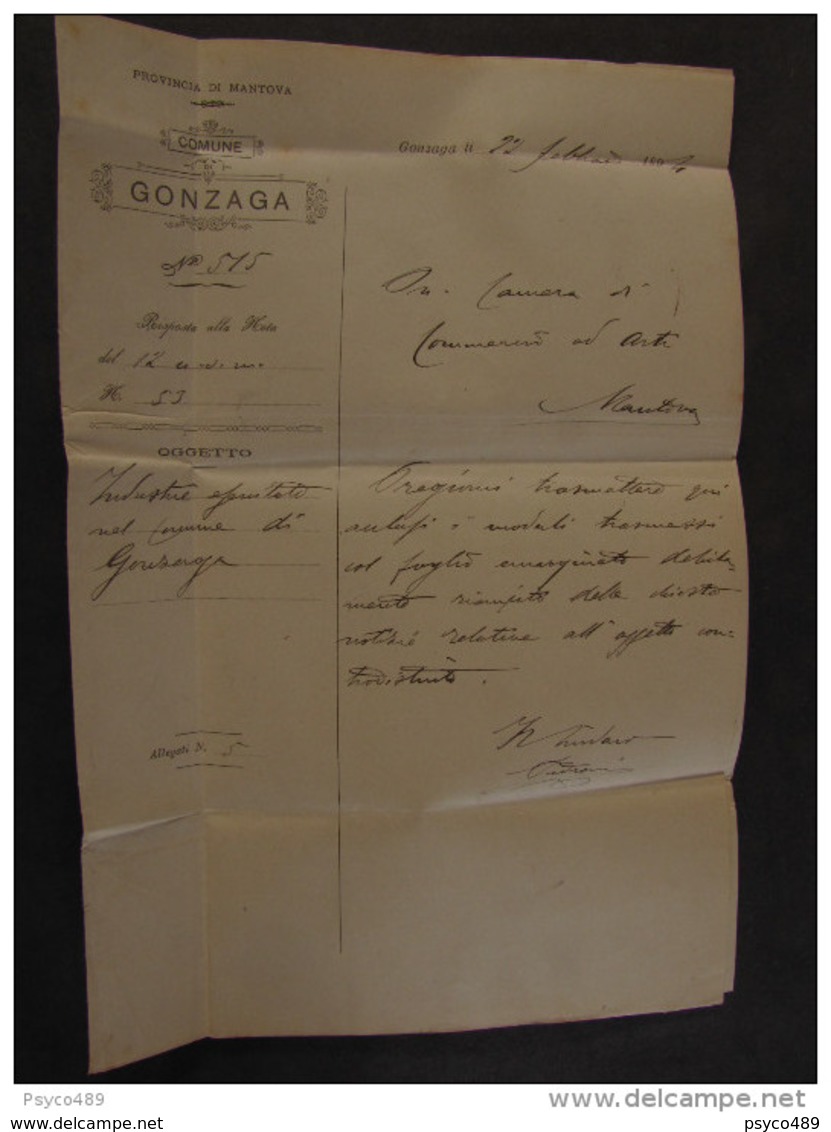 PROVINCIA DI MANTOVA
COMUNE
DI
GONZAGA
Nº 515
Risposta alla Nota
del 12 u.d.m.
N. 53
OGGETTO
Industrie
nel Comune di
Gonzaga
Allegati N. 5
Gonzaga li 22 febbraio 189
On. Camera di
Commercio ed Arti
Mantova
Pregiomi trasmettere qui
i moduli trasmessi
col foglio emarginato debita-
mente riempito delle chieste
notizie relative all' oggetto con-
trodistinto.
Il Sindaco
Psyco489
www.delcampe.net
www.delcampe.com
psyco489